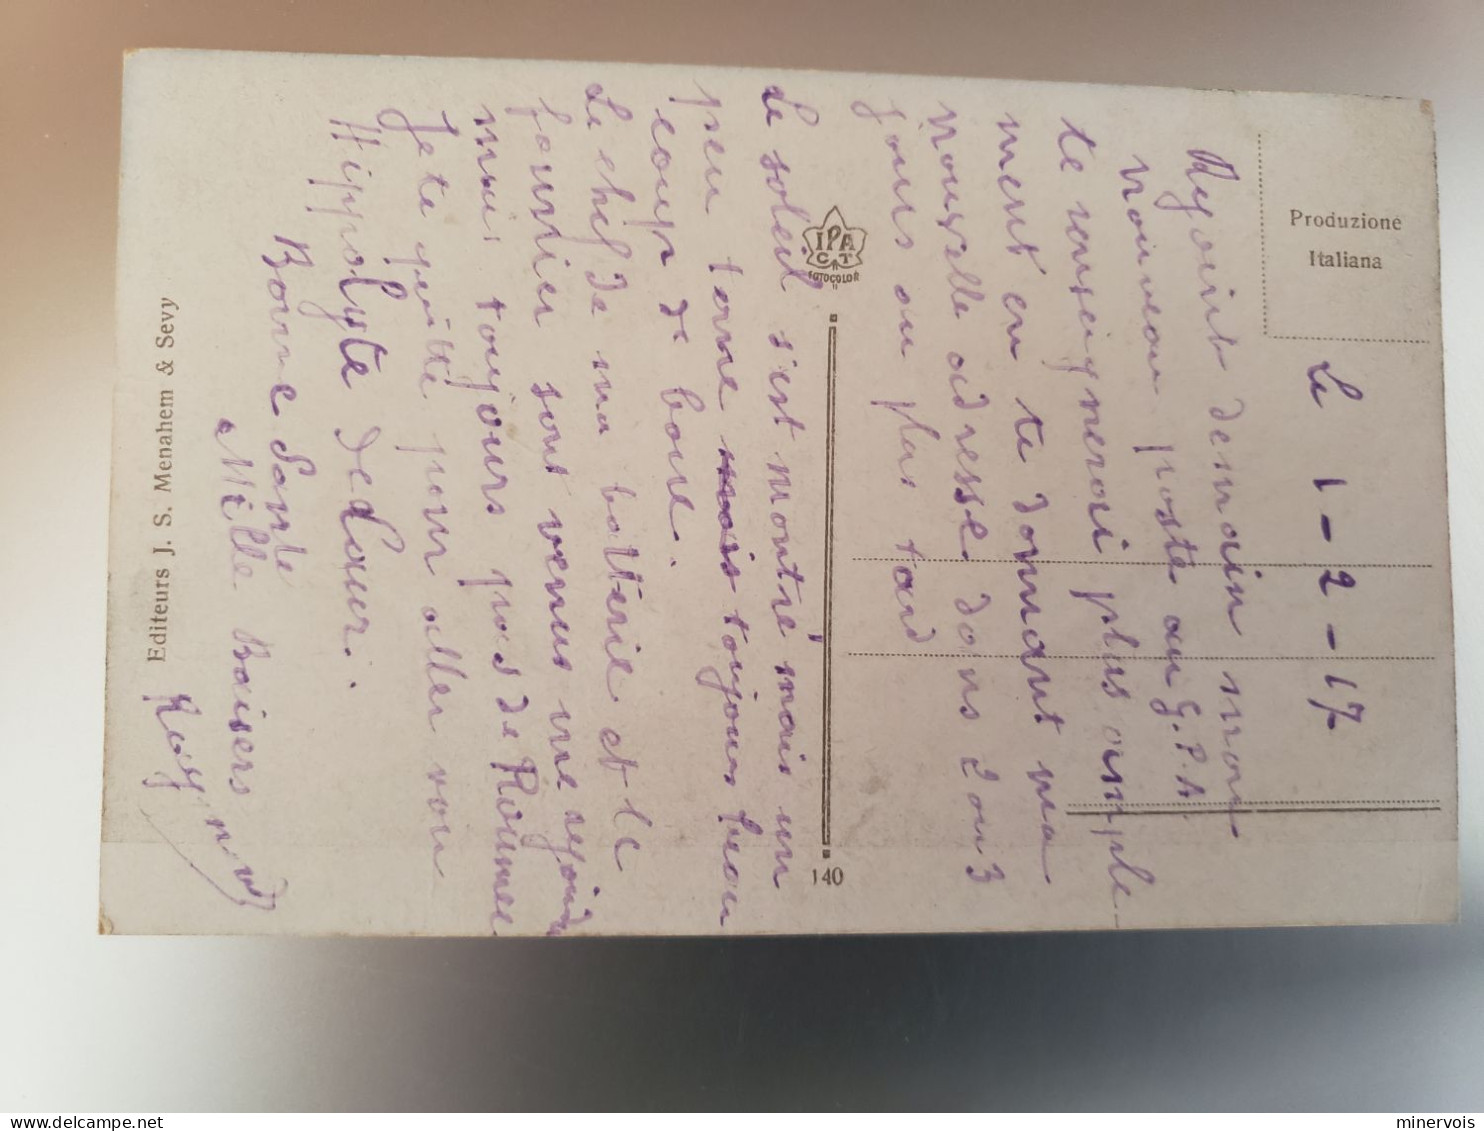 Le 1-2-17
Rejoint demain mon
nouveau poste au G.P.A.
te renseignerai plus ample-
ment en te donnant ma
nouvelle adresse dans 2 ou 3
jours ou plus tard
Le soleil s'est montré mais un
peu terne mais toujours beau
coup de boue.
Le chef de ma batterie et le
fourrier sont venus me rejoind
mais toujours pas de
Je te quitte pour aller voir
Hippolyte Delaur.
Bonne Santé
Mille Baisers
Raymond
Produzione
Italiana
IPA
CT
FOTOCOLOR
140
Editeurs J. S. Menahem & Sevy
delcampe.net
minervois